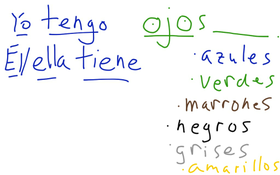 Yo tengo
Él/ella tiene
ojos ______
· azules
· verdes
· marrohes
· negros
· grises
· amarillos